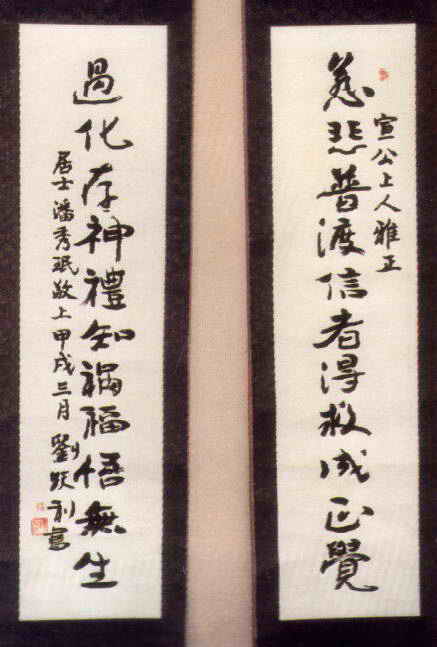 宣公上人雅正
慈悲普渡信者得救成正覺
過化存神禮知禍福悟無生
居士潘秀珉敬上甲戌三月劉跃利書